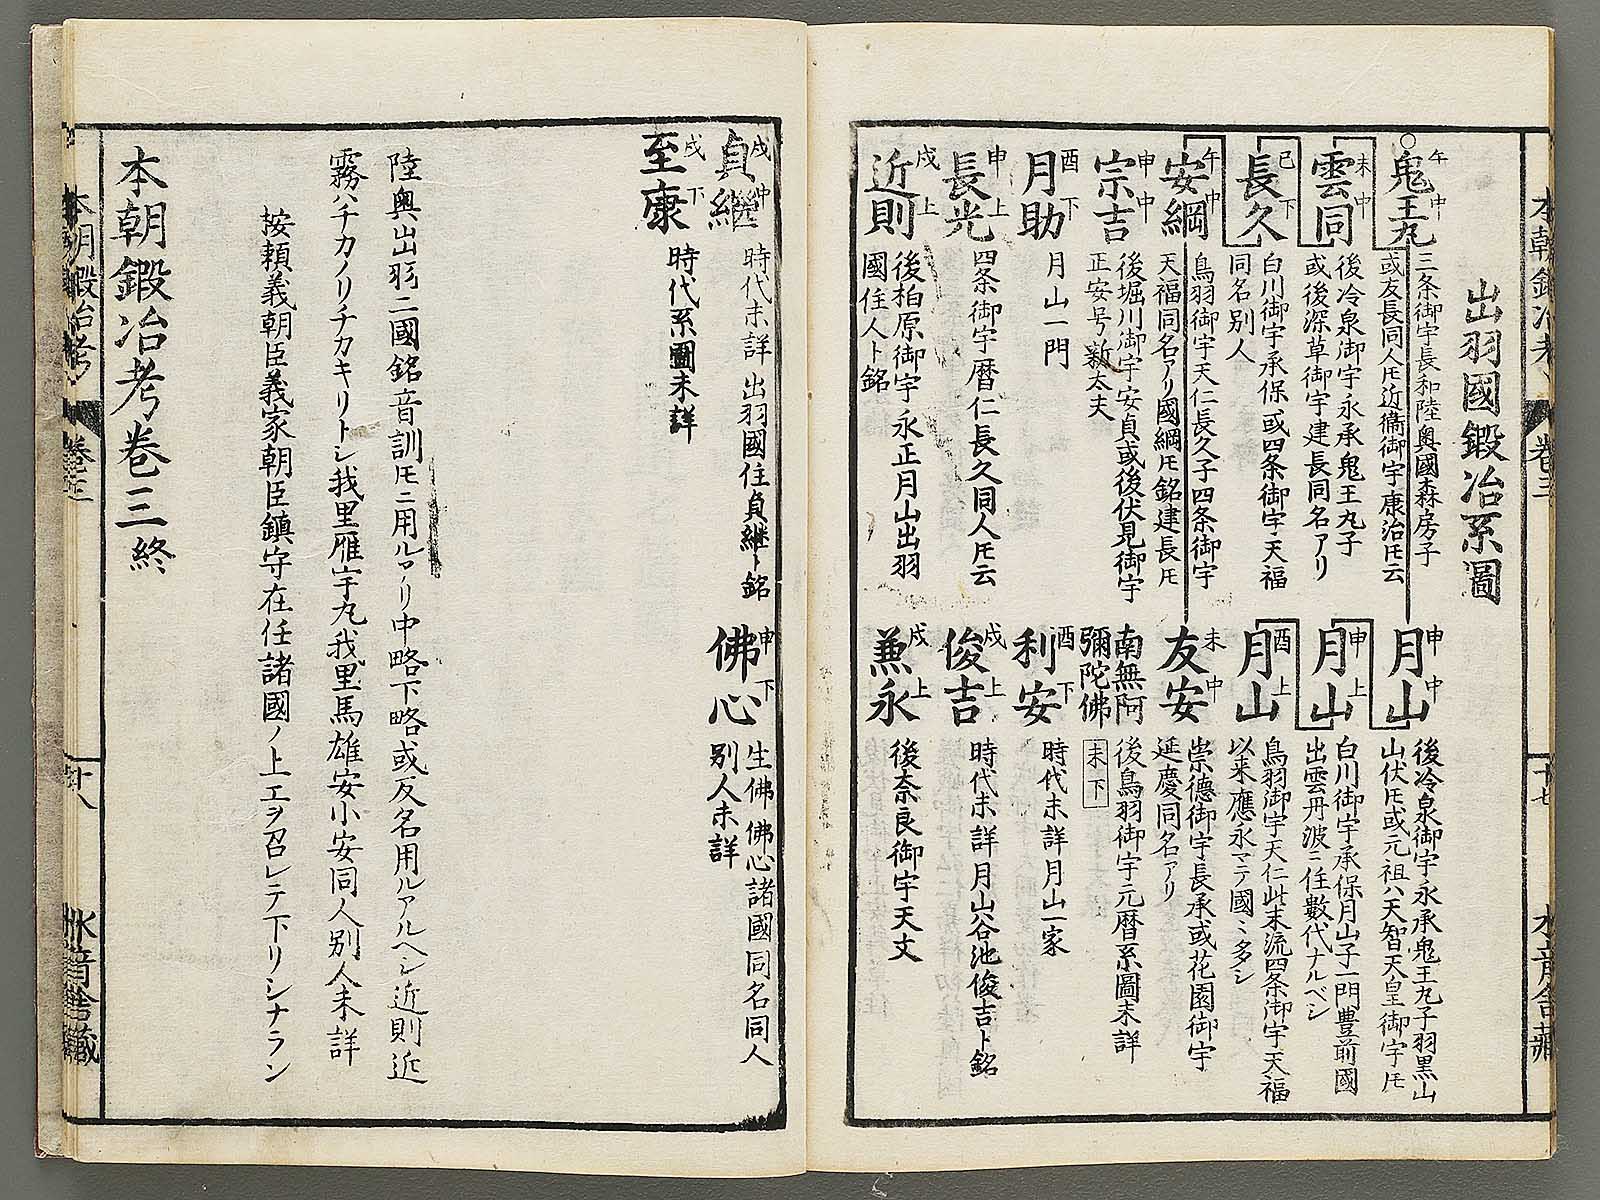 出羽國鍛冶系圖
午中
鬼王丸
三条御宇長和陸奥國森房子
或友長同人𪜈近衞御宇康治𪜈云
未中
雲同
後冷泉御宇永承鬼王丸子
或後深草御宇建長同名アリ
巳下
長久
白川御宇承保或四条御宇天福
同名別人
午中
安綱
鳥羽御宇天仁長久子四条御宇
天福同名アリ國綱𪜈銘建長𪜈
申中
宗吉
後堀川御宇安貞或後伏見御宇
正安号新太夫
酉下
月助
月山一門
申上
長光
四条御宇暦仁長久同人𪜈云
戌上
近則
後柏原御宇永正月山出羽
國住人ト銘
申中
月山
後冷泉御宇永承鬼王丸子羽黒山
山伏𪜈或元祖ハ天智天皇御宇𪜈
申上
月山
白川御宇承保月山子一門豊前國
出雲丹波ニ住數代ナルベシ
酉上
月山
鳥羽御宇天仁此末流四条御宇天福
以来應永マテ國〻多シ
未中
友安
崇德御宇長承或花園御宇
延慶同名アリ
南無阿
彌陀佛
未下
後鳥羽御宇元暦系圖未詳
酉下
利安
時代未詳月山一家
戌上
俊吉
時代未詳月山谷池俊吉ト銘
戌上
兼永
後奈良御宇天文
本朝鍛冶考
卷三
十七
水音舍藏
戌中
貞継
時代未詳出羽國住貞継ト銘
戌下
至康
時代系圖未詳
申下
佛心
生佛佛心諸國同名同人
別人未詳
陸奥出羽二國銘音訓𪜈ニ用ルアリ中略下略或反名用ルアルヘシ近則近
霧ハチカノリチカキリトシ我里雁宇丸我里馬雄安小安同人別人未詳
按頼義朝臣義家朝臣鎮守在任諸國ノ上エヲ召レテ下リシナラン
本朝鍛冶考卷三終
本朝鍛冶考
卷之三
十八
水音舍藏